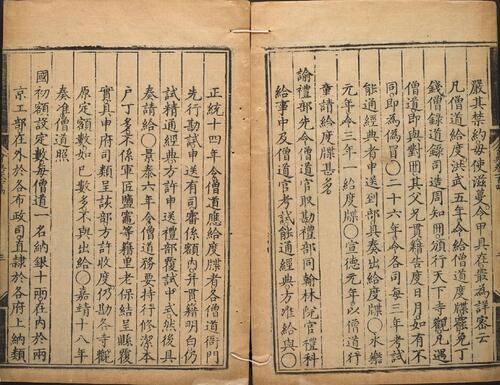 嚴其禁約毋使滋蔓令甲具在最為詳密云
凡僧道給度洪武五年令給僧道度牒罷免丁
錢僧錄道錄司造周知冊頒行天下寺觀凡遇
僧道即與對冊其父兄貫籍告度日月如有不
同即為偽冒〇二十六年令各司每三年考試
能通經典者申送到部具奏出給度牒〇永樂
元年令三年一給度牒〇宣德元年以僧道行
童請給度牒甚多
諭禮部先令僧道官取勘禮部同翰林院官禮科
給事中及僧道官考試能通經典方准給與〇
正統十四年令僧道應給度牒者各僧道衙門
先行勘試申送有司審係額內并貫籍明白仍
試精通經典方許申送禮部覆試中式然後具
奏請給〇景泰六年令僧道務要持行修潔本
戶丁多不係軍匠鹽竈等籍里老保結呈縣覆
實具申府司類呈該部方許收度仍勘各寺觀
原定額數如已數多不與出給〇嘉靖十八年
奏准僧道照
國初額設定數每僧道一名納銀十兩在內於兩
京工部在外於各布政司直隸於各府上納類